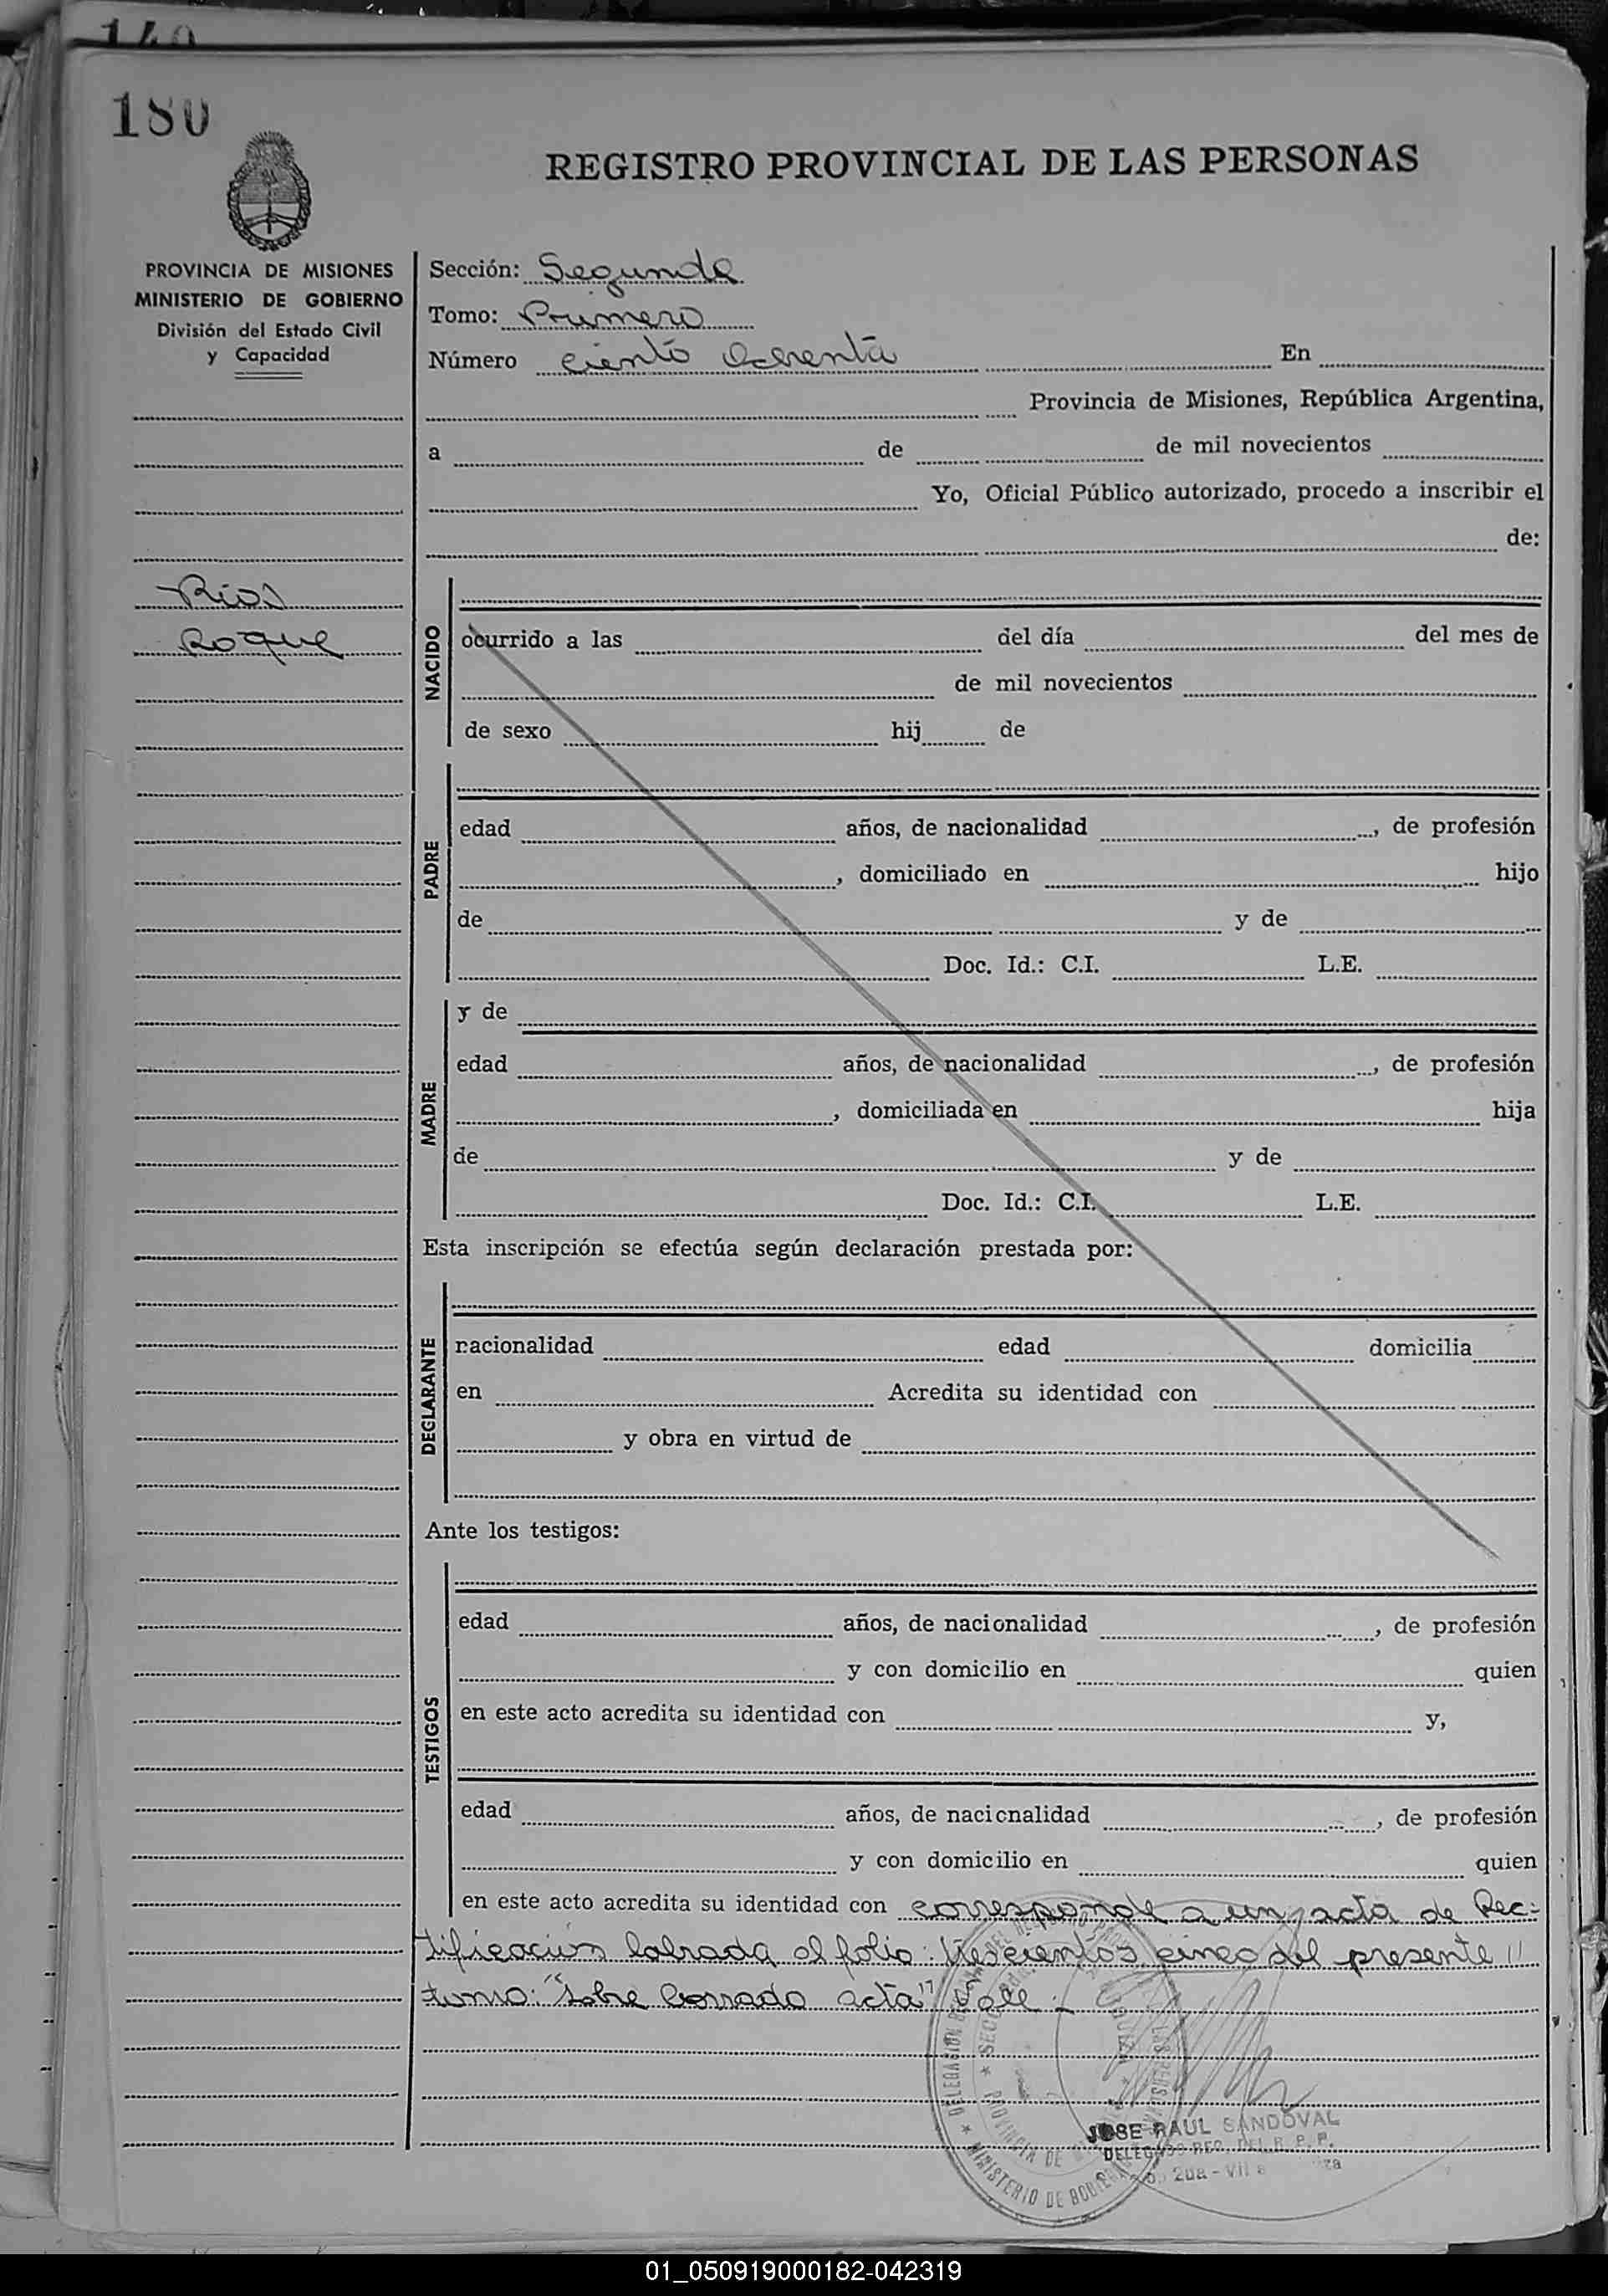 140
180
REGISTRO PROVINCIAL DE LAS PERSONAS
PROVINCIA DE MISIONES
MINISTERIO DE GOBIERNO
División del Estado Civil
y Capacidad
Rios
Roque
Sección: Segunda
Tomo: Primero
Número ciento Ochenta En
Provincia de Misiones, República Argentina,
a de de mil novecientos
Yo, Oficial Público autorizado, procedo a inscribir el
de:
NACIDO
ocurrido a las del día del mes de
de mil novecientos
de sexo hij de
PADRE
edad años, de nacionalidad , de profesión
, domiciliado en hijo
de y de
Doc. Id.: C.I. L.E.
MADRE
y de
edad años, de nacionalidad , de profesión
, domiciliada en hija
de y de
Doc. Id.: C.I. L.E.
Esta inscripción se efectúa según declaración prestada por:
DECLARANTE
nacionalidad edad domicilia
en Acredita su identidad con
y obra en virtud de
Ante los testigos:
TESTIGOS
edad años, de nacionalidad , de profesión
y con domicilio en quien
en este acto acredita su identidad con y,
edad años, de nacionalidad , de profesión
y con domicilio en quien
en este acto acredita su identidad con corresponde a un acta de Rec-
tificacion labrada al folio: trescientos cinco del presente
tomo: "Sobre borrado acta" Vale.-
JOSE RAUL SANDOVAL
DELEGADO REC. DEL R. P. P.
2da - Vil
MINISTERIO DE
PROVINCIA DE
01_050919000182-042319